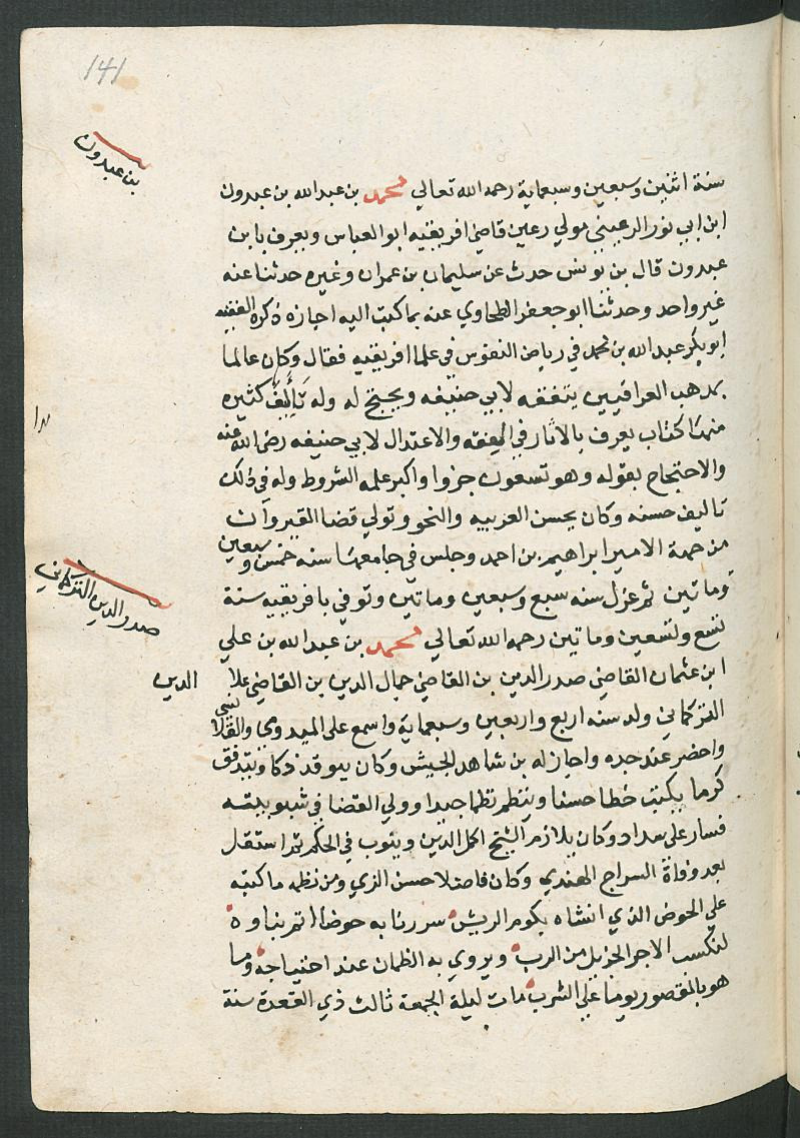 141
بن عبدون
سنة اثنين وسبعين وسبعماية رحمه الله تعالي محمد بن عبدالله بن عبدون
ابن ابي ثور الرعيني مولي رعين قاضي افريقيه ابو العباس ويعرف بابن
عبدون قال بن يونس حدث عن سليمان بن عمران وغيره حدثنا عنه
غير واحد وحدثنا ابو جعفر الطحاوي عنه بما كتب اليه اجازه ذكره الفقيه
ابو بكر عبدالله بن محمد في رياض النفوس في علما افريقيه فقال وكان عالما
بمذهب العراقيين يتفقه لابي حنيفه ويحتج له وله تأليف كثيره
منها كتاب يعرف بالاثار في الفقه والاعتدال لابي حنيفه رضي الله عنه
والاحتجاج بقوله وهو تسعون جزوا واكبر علمه الشروط وله في ذلك
تاليف حسنه وكان يحسن العربيه والنحو وتولي قضا القيروان
من جهة الامير ابراهيم بن احمد وجلس في جامعها سنه خمس وسبعين
وماتين ثم عزل سنه سبع وسبعين وماتين وتوفي بافريقيه سنة
تسع وتسعين وماتين رحمه الله تعالي محمد بن عبدالله بن علي
صدر الدين التركماني
ابن عثمان القاضي صدر الدين بن القاضي جمال الدين بن القاضي علا الدين
التركماني ولد سنه اربع واربعين وسبعماية واسمع علي الميدومي والقلانسي
واحضر عند جده واجاز له بن شاهد الجيش وكان يتوقد ذكا ويتدفق
كرما يكتب خطا حسنا وينظم نظما جيدا وولي القضا في شبوبيته
فسار علي سداد وكان يلازم الشيخ اكمل الدين وينوب في الحكم ثم استقل
بعد وفاة السراج الهندي وكان فاضلا حسن الزي ومن نظمه ما كتبه
علي الحوض الذي انشاه بكوم الريش سررنا به حوضا
لنكسب الاجر الجزيل من الرب ويروي به الظمان عند احتياجه وما
هو بالمقصور يوما علي الشرب مات ليلة الجمعة ثالث ذي القعدة سنة